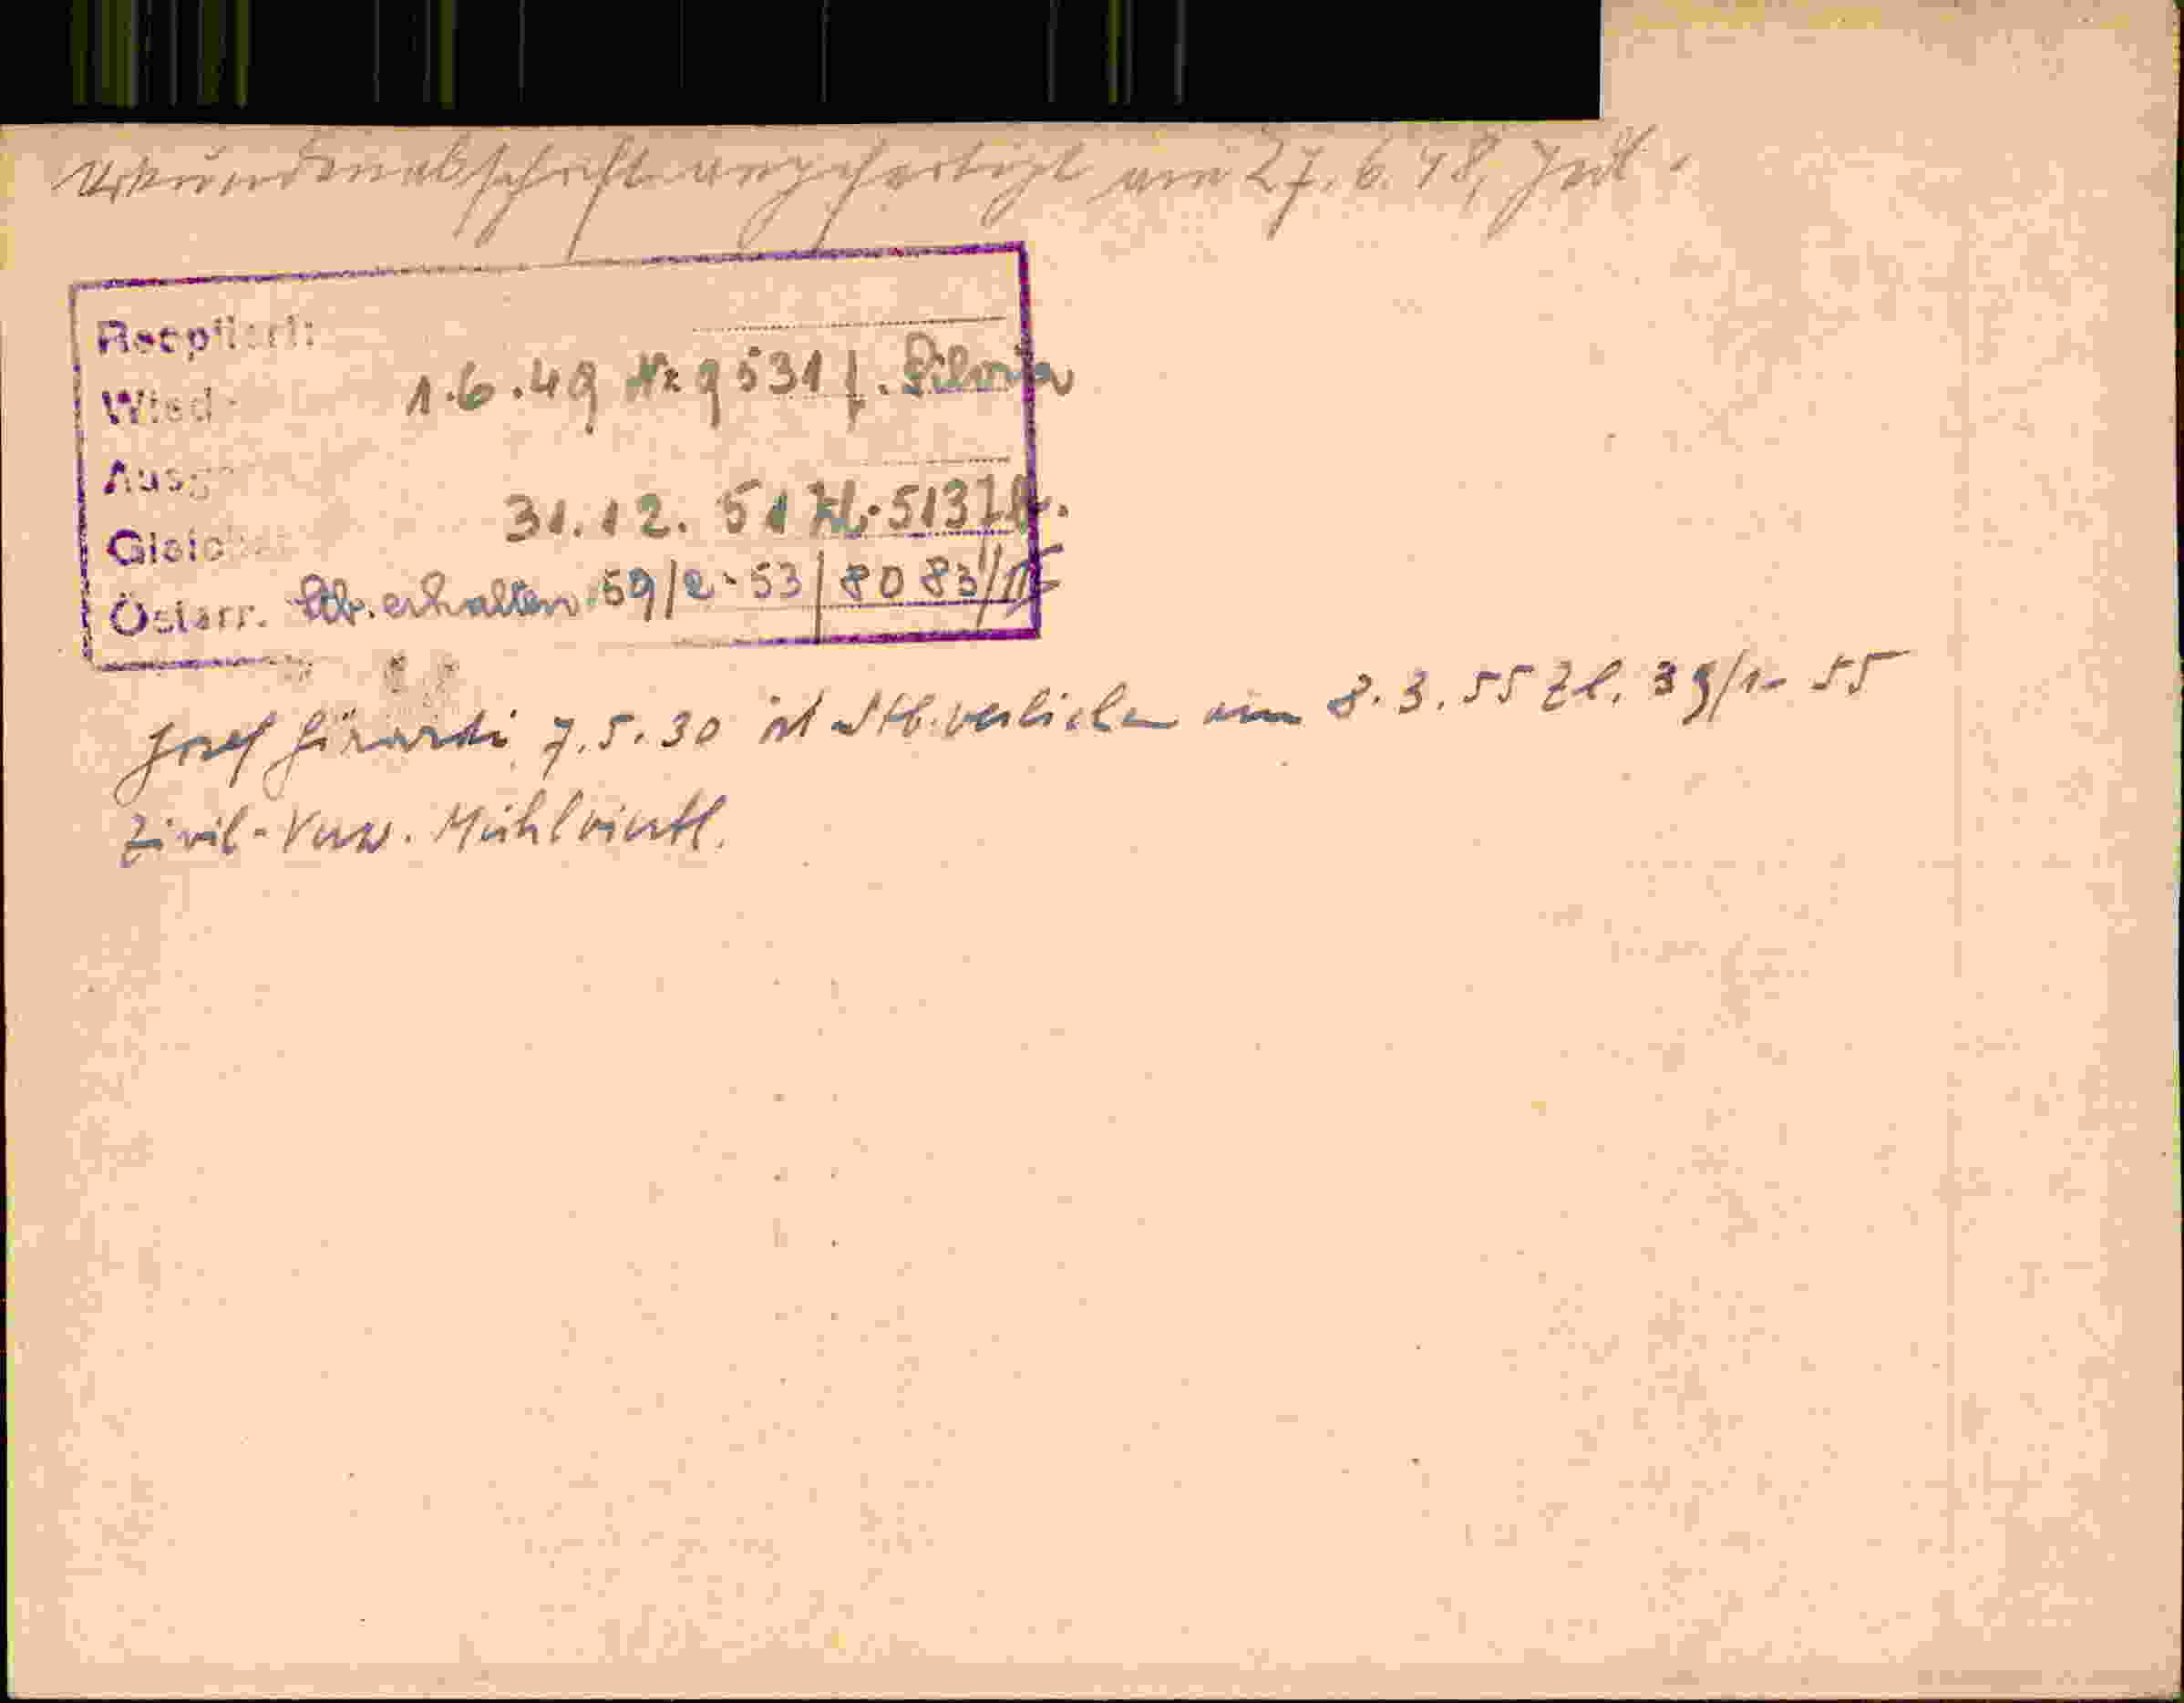 Urkundenabschrift angefertigt am 27. 6. 48,
Reoptiert:
1.6.49 Nr 9531 f. Silvia
31.12. 51 Zl. 5137
Österr. Stb. erhalten 59/2-53 / 8083/II
Josef Girardi, 7.5.30 ist Stb. verliehen am 8.3.55 Zl. 39/1-55
Zivil-Verw. Mühlviertl.